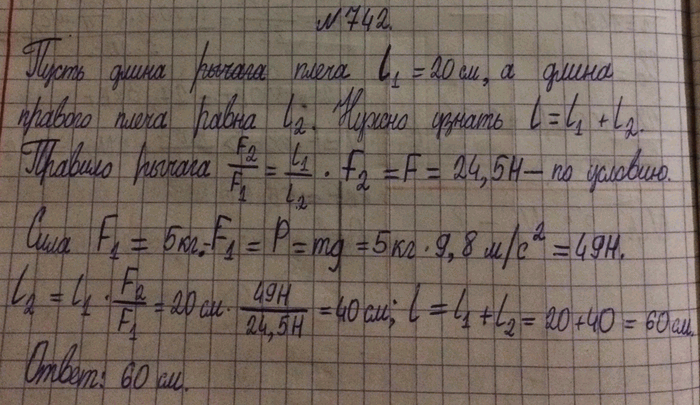 №742.
Пусть длина рычага плеча l₁ = 20 см, а длина
правого плеча равна l₂. Нужно узнать l = l₁ + l₂.
Правило рычага F₂/F₁ = l₁/l₂ · F₂ = F = 24,5Н — по условию.
Сила F₁ = 5кг. - F₁ = P = mg = 5кг · 9,8 м/с² = 49Н.
l₂ = l₁ · F₂/F₁ = 20 см · 49Н/24,5Н = 40 см; l = l₁ + l₂ = 20 + 40 = 60 см.
Ответ: 60 см.